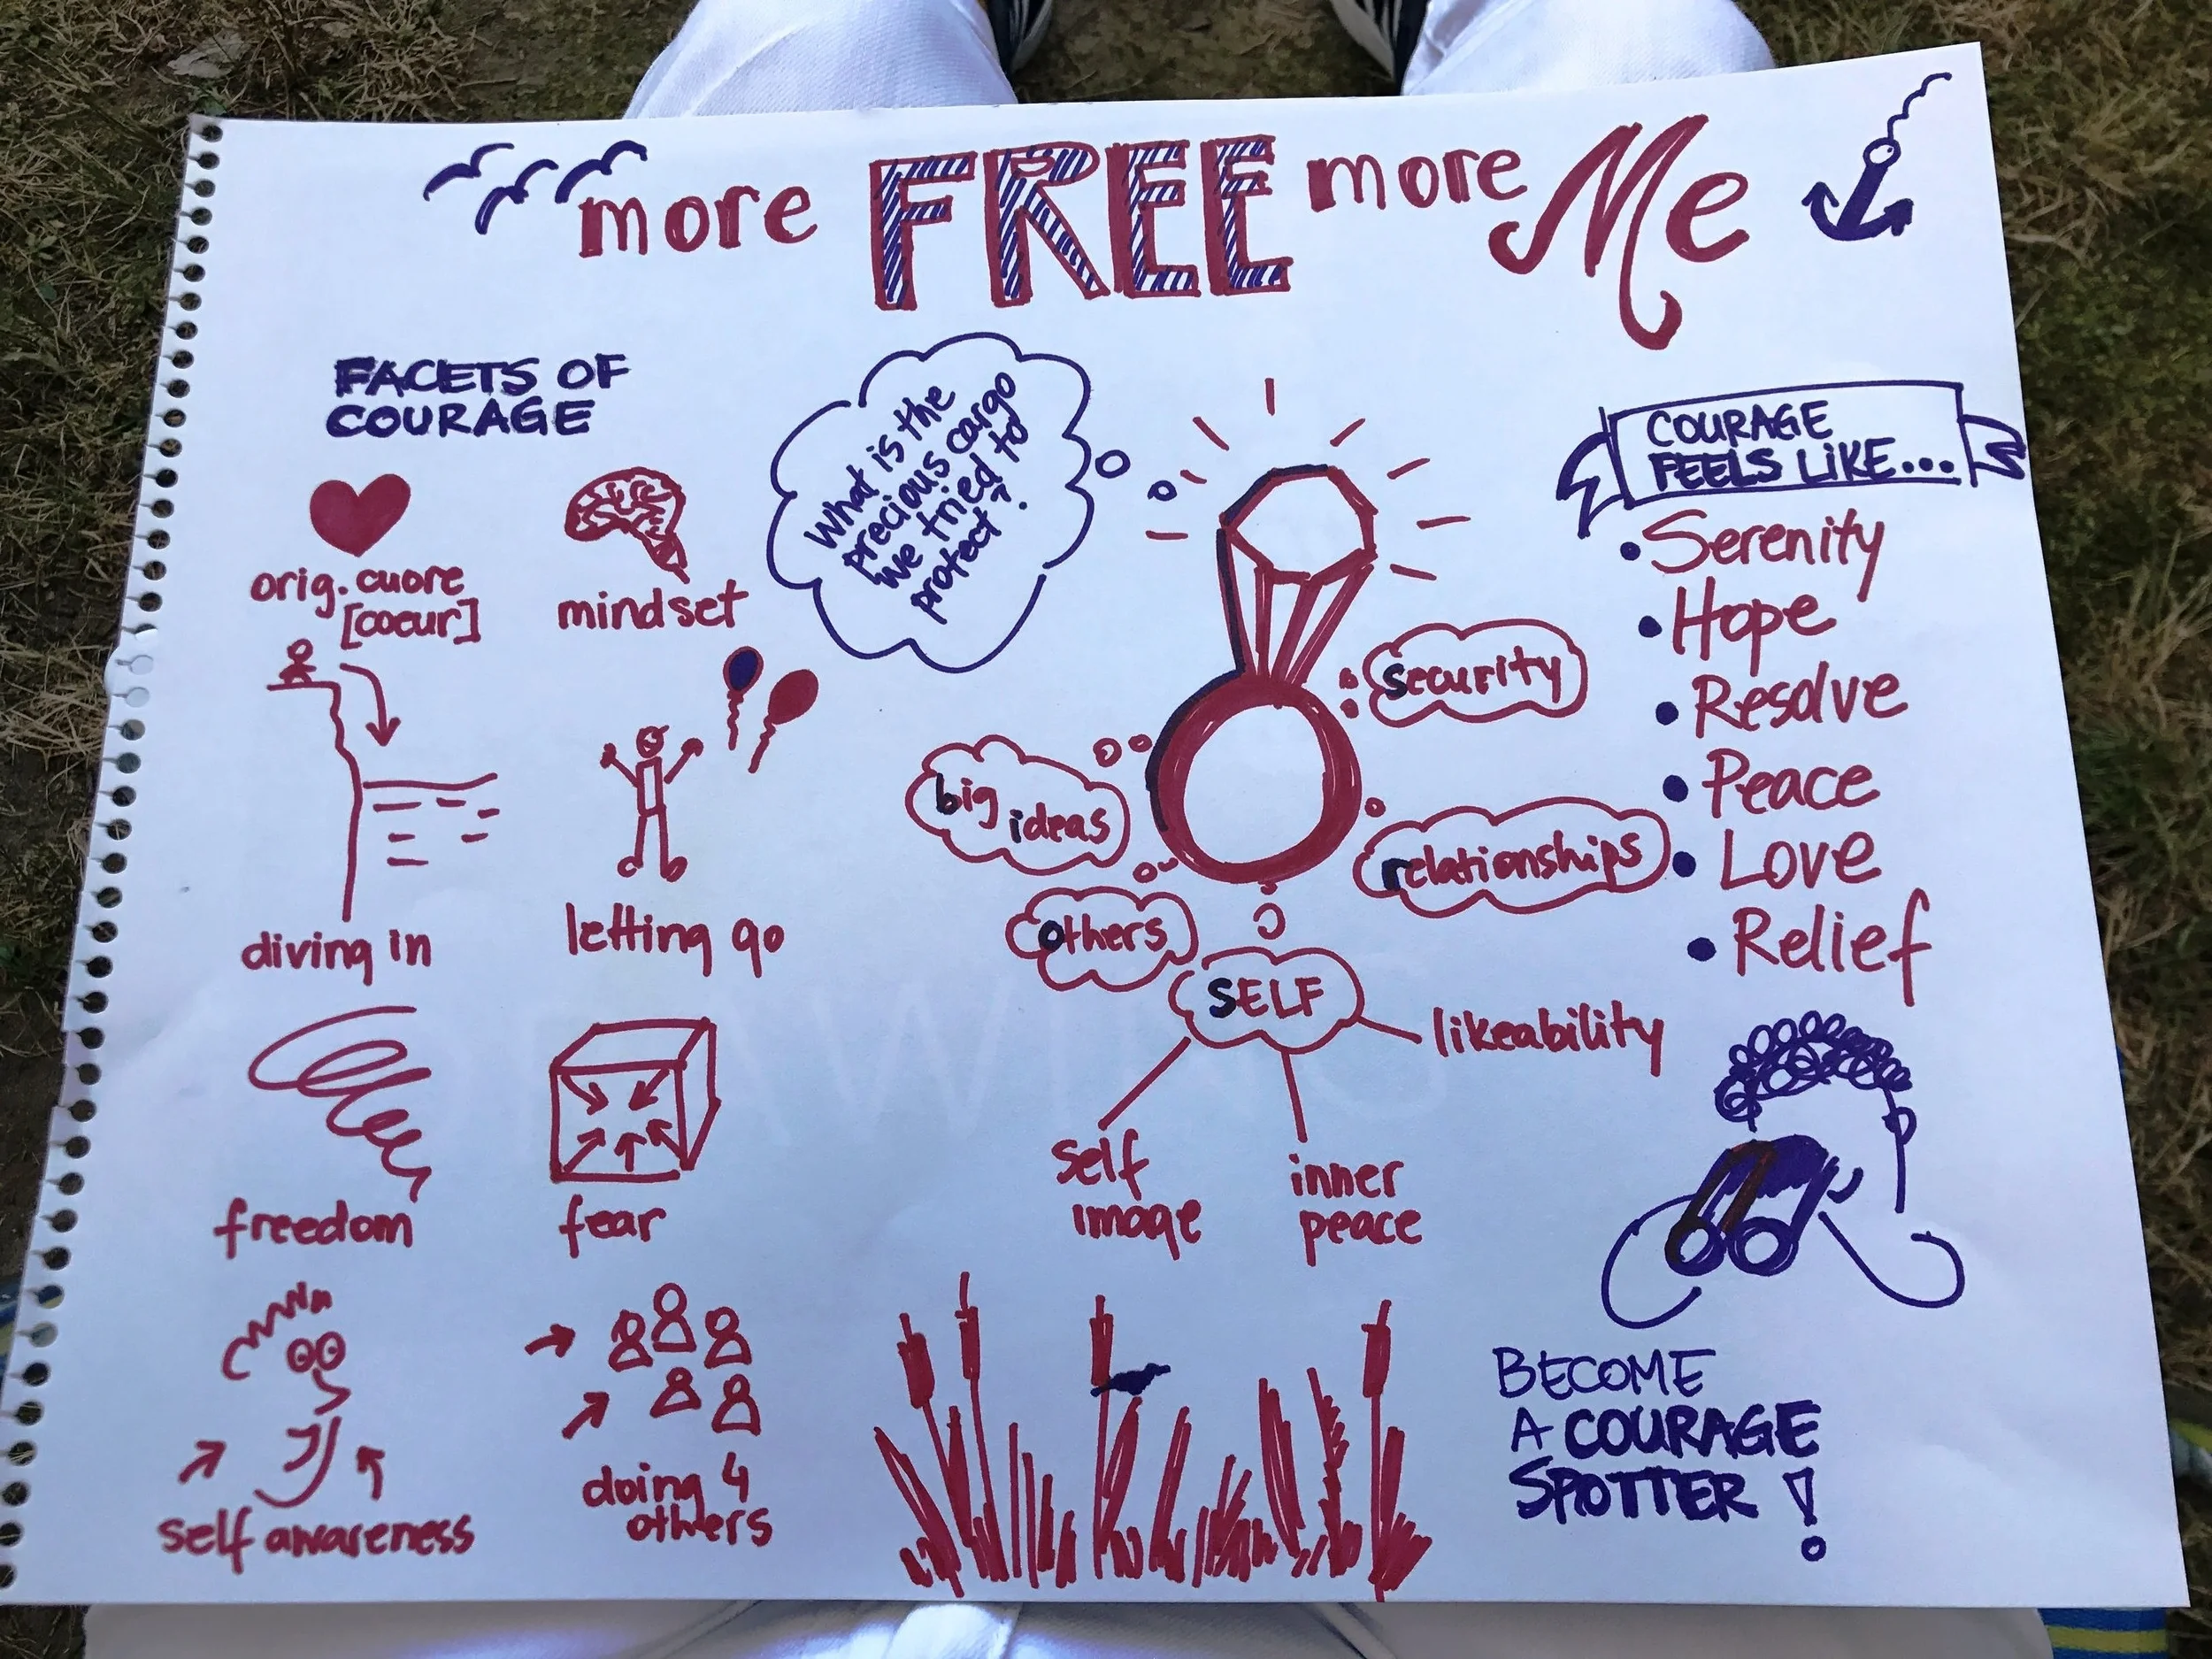 more FREE more Me
FACETS OF
COURAGE
orig. cuore
[coeur]
mindset
diving in
letting go
freedom
fear
self awareness
doing 4
others
What is the
precious cargo
we tried to
protect?
security
big
ideas
relationships
others
SELF
likeability
self
image
inner
peace
COURAGE
FEELS LIKE...
• Serenity
• Hope
• Resolve
• Peace
• Love
• Relief
BECOME
A COURAGE
SPOTTER!